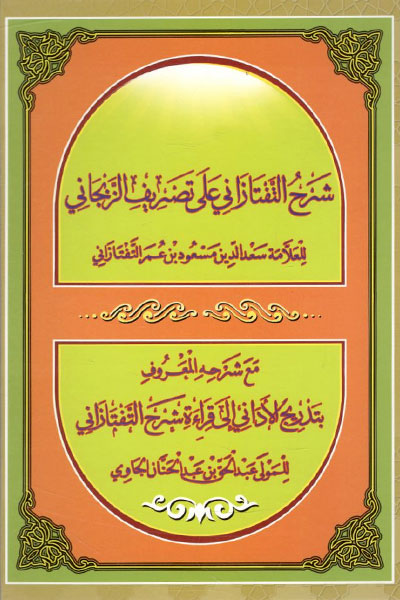 شَرْحُ التَّفْتَازَانِي عَلَى تَصْرِيْفِ الزَّنْجَانِي
لِلْعَلَّامَة سَعْدِ الدِّين مَسْعُود بْن عُمَر التَّفْتَازَانِي
مَعَ شَرْحِهِ الْمَعْرُوفِ
بِتَدْرِيْجِ الْأَدَانِي إِلَى قِرَاءَةِ شَرْحِ التَّفْتَازَانِي
لِلْمَوْلَى عَبْدِ الْحَقِّ بْن عَبْدِ الْحَنَّان الْجَاوِي